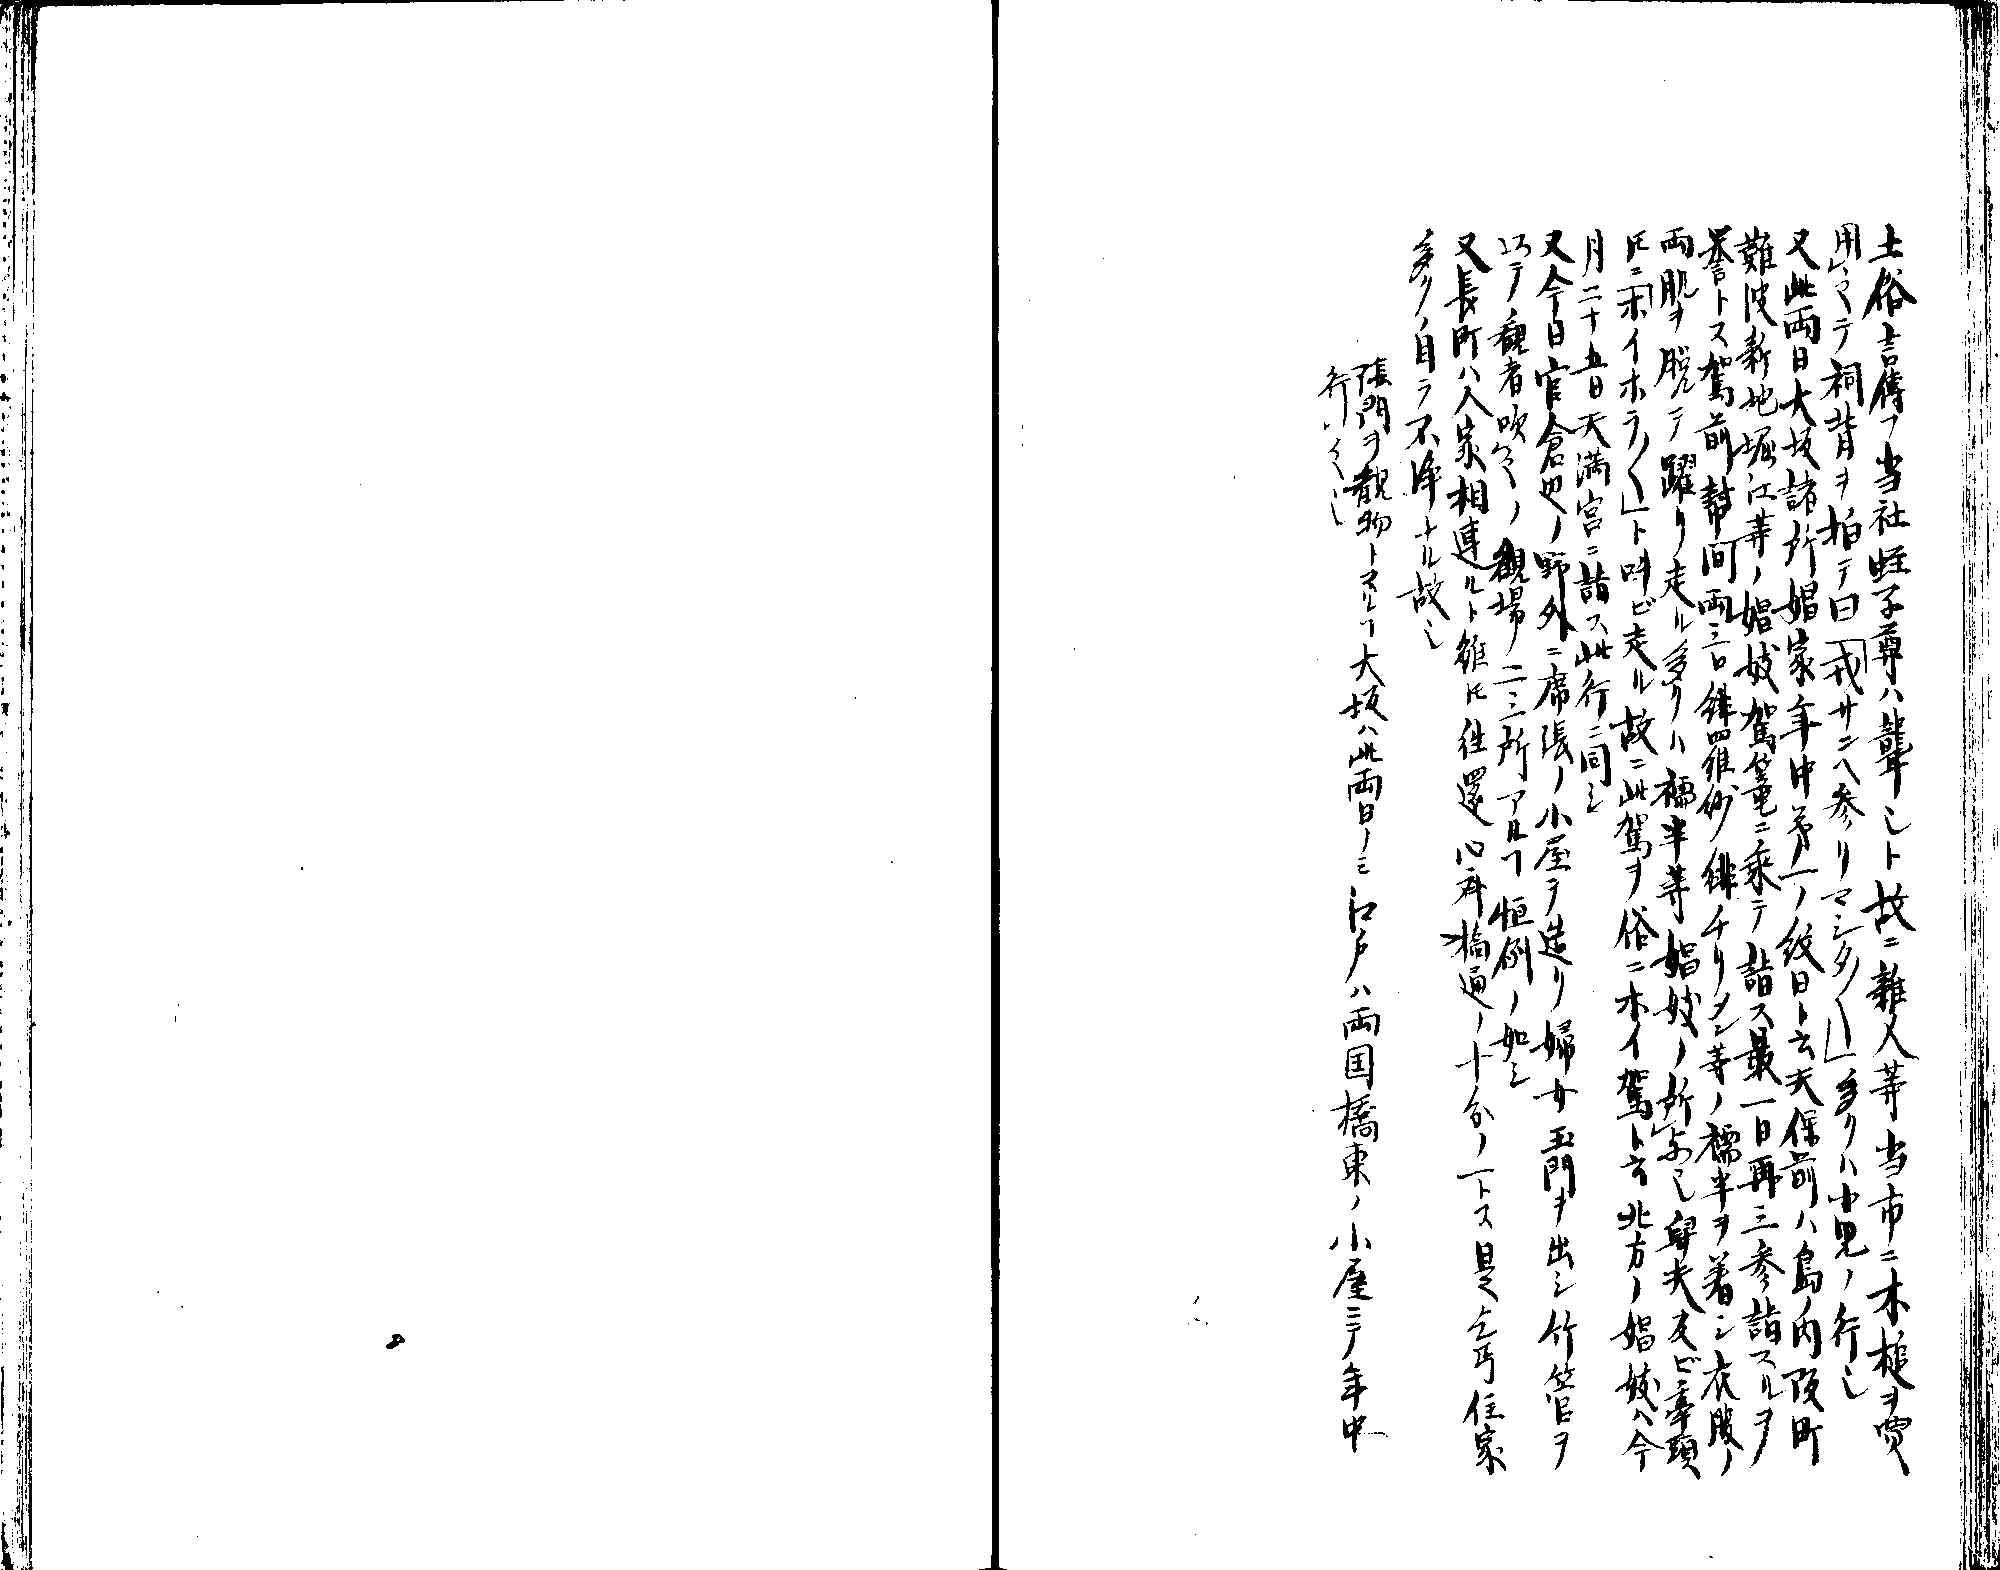 土俗言傳フ当社蛭子尊ハ聾也ト故ニ雜人等当市ニ木槌ヲ買
用之テ祠背ヲ拍テ曰「戎サンヘ参リマシタ〱」多クハ小児ノ行也
又此両日大坂諸所娼家年中第一ノ紋日ト云天保前ハ島ノ内坂町
難波新地堀江等ノ娼妓駕篭ニ乗テ詣ス最一日再三参詣スルヲ
誉トス駕前幇間両三口緋四羅紗緋チリメン等ノ襦半ヲ着シ衣服ノ
両肌ヲ脱テ躍リ走ル多クハ襦半等娼妓ノ所与也舁夫及ビ牽頭
トモニ「ホイホラ〱」ト呼ビ走ル故ニ此駕ヲ俗ニホイ駕ト云北方ノ娼妓ハ今
月二十五日天満宮ニ詣ス此行ニ同シ
又今日官倉辺ノ野外ニ席張ノ小屋ヲ造リ婦女玉門ヲ出シ竹管ヲ
以テ観者吹之ノ観場二三所アルヿ恒例ノ如シ
又長町ハ人家相連ルト雖トモ往還心斉橋通ノ十分ノ一トス是乞丐住家
多ク自ラ不浄ナル故也
張門ヲ観物トスルヿ大坂ハ此両日ノミ江戸ハ両国橋東ノ小屋ニテ年中
行之也